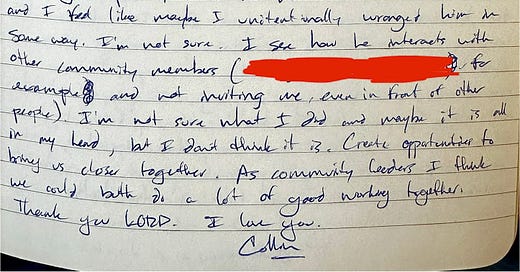 and I feel like maybe I unitentionally wronged him in
some way. I'm not sure. I see how he interacts with
other community members ( for
example and not inviting me, even in front of other
people). I'm not sure what I did and maybe it is all
in my head, but I dont think it is. Create opportunities to
bring us closer together. As community leaders I think
we could both do a lot of good working together.
Thank you LORD. I love you.
Collin